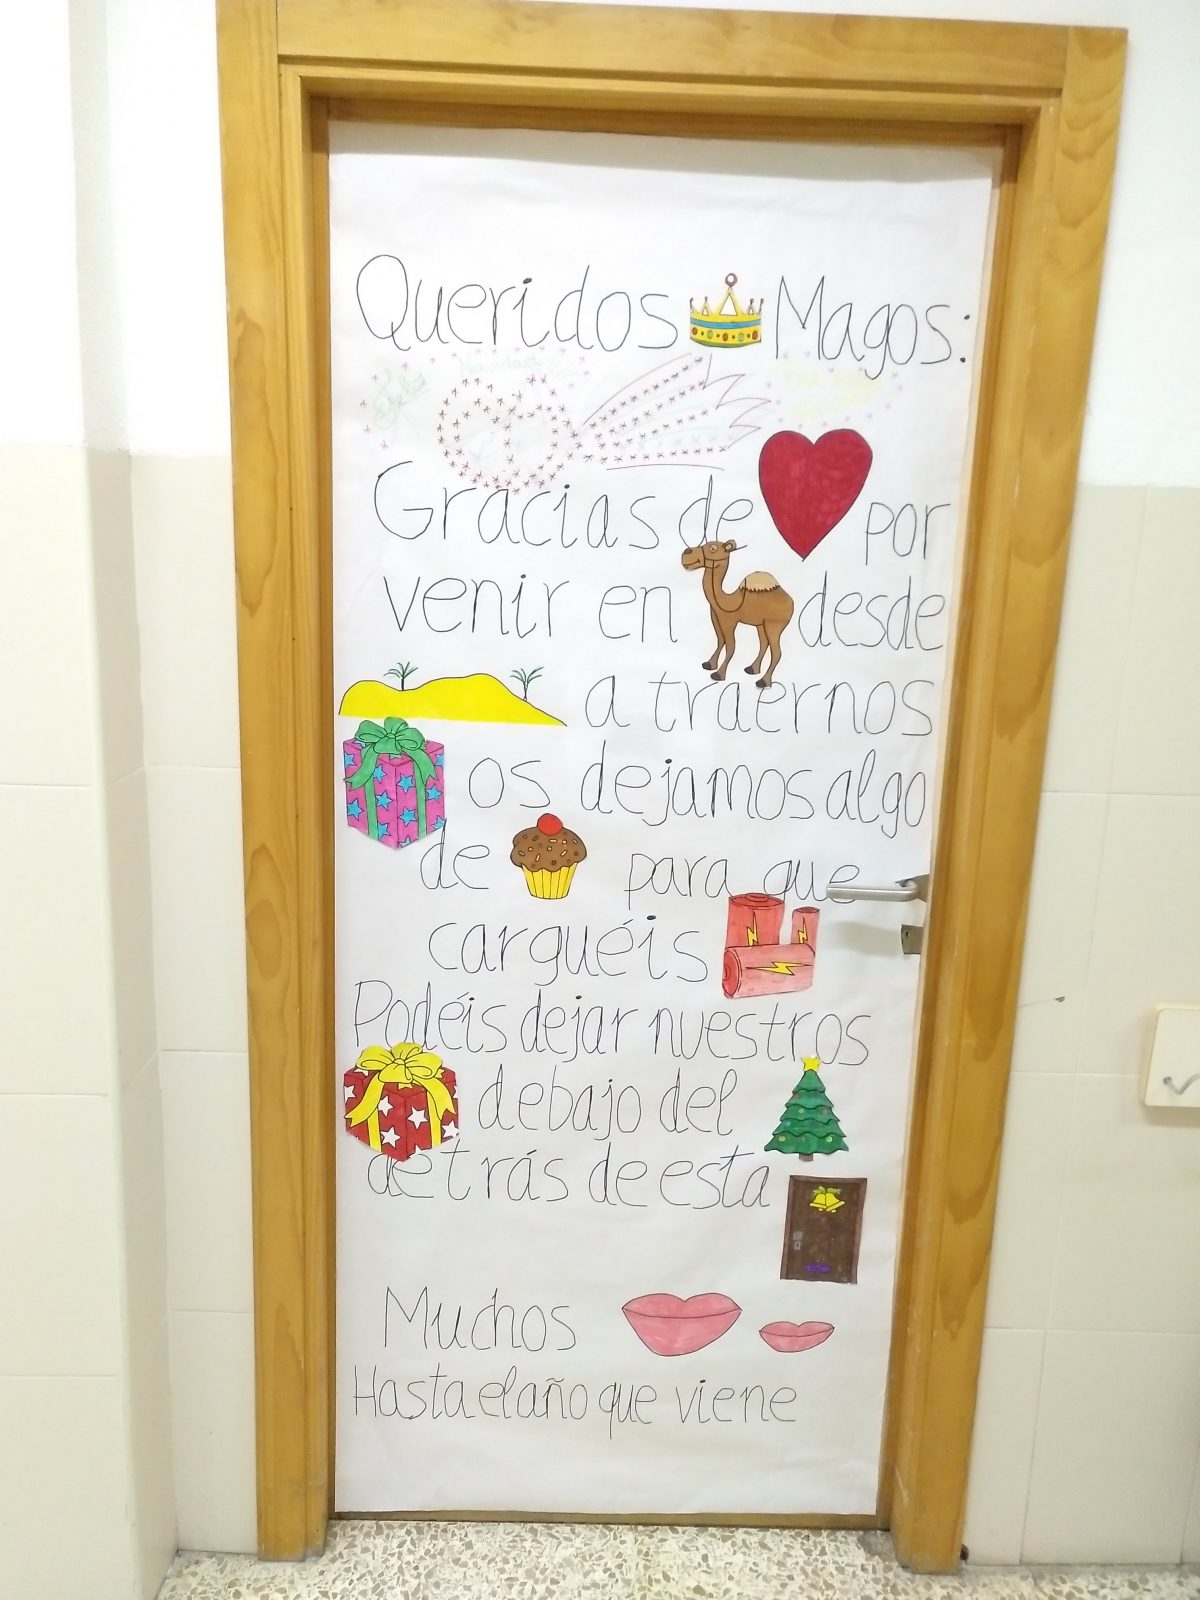 Queridos Magos:
Feliz Navidad
Gracias de por
venir en desde
a traernos
os dejamos algo
de para que
carguéis
Podéis dejar nuestros
debajo del
detrás de esta
Muchos
Hasta el año que viene